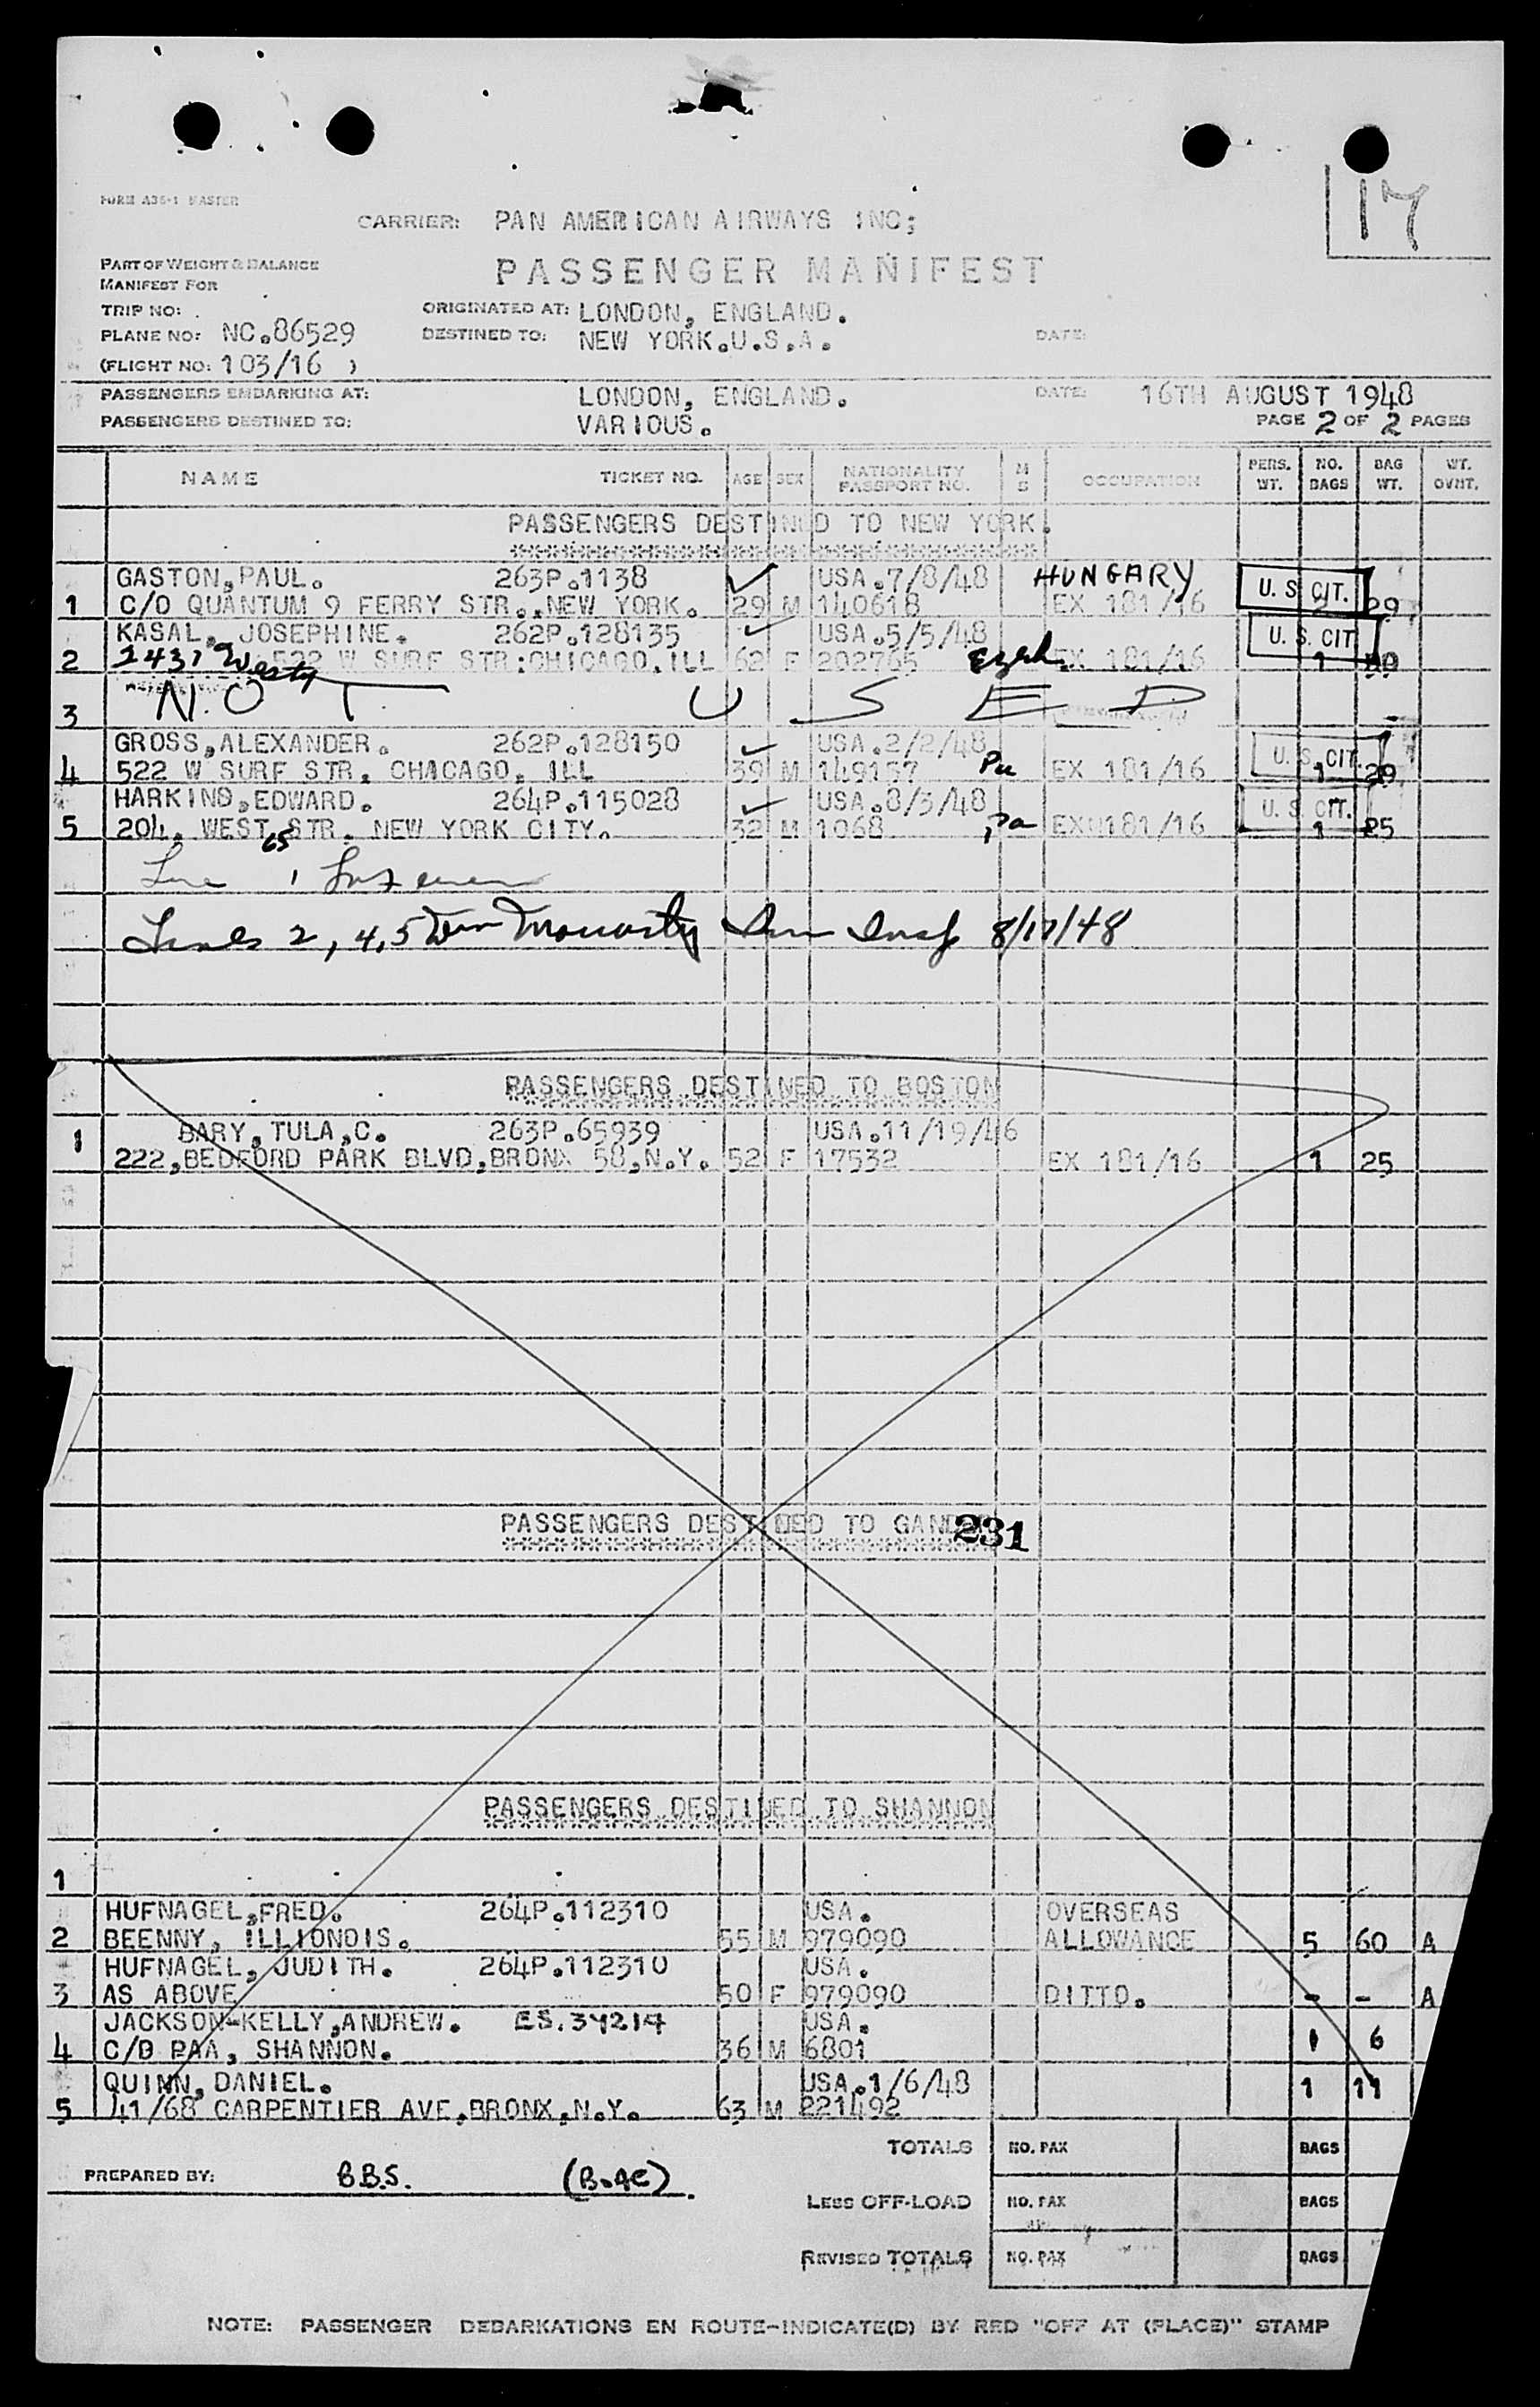 FORM A36-1 MASTER
17
CARRIER: PAN AMERICAN AIRWAYS INC;
PART OF WEIGHT & BALANCE
MANIFEST FOR
PASSENGER MANIFEST
TRIP NO:
ORIGINATED AT: LONDON, ENGLAND.
PLANE NO: NC.86529
DESTINED TO: NEW YORK.U.S.A.
DATE:
(FLIGHT NO: 103/16 )
PASSENGERS EMBARKING AT: LONDON, ENGLAND. DATE: 16TH AUGUST 1948
PASSENGERS DESTINED TO: VARIOUS. PAGE 2 OF 2 PAGES
NAME TICKET NO. AGE SEX NATIONALITY PASSPORT NO. M S OCCUPATION PERS. WT. NO. BAGS BAG WT. WT. OVHT.
PASSENGERS DESTINED TO NEW YORK.
GASTON,PAUL. 263P.1138 USA.7/8/48 HUNGARY U.S. CIT.
1 C/O QUANTUM 9 FERRY STR.,NEW YORK. 29 M 140618 EX 181/16 2 29
KASAL, JOSEPHINE. 262P.128135 USA.5/5/48 U.S. CIT
2 2437 522 W SURF STR:CHICAGO.ILL 62 F 202765 EX 181/16 1
3 NOT USED
GROSS,ALEXANDER. 262P.128150 USA.2/2/48 U.S. CIT.
4 522 W SURF STR. CHACAGO. ILL 39 M 149157 Pa EX 181/16 1 29
HARKINS,EDWARD. 264P.115028 USA.8/3/48 U.S. CIT.
5 204, WEST 65 STR. NEW YORK CITY. 32 M 1068 Pa EX 181/16 1 25
Line 1
Lines 2, 4, 5 Wm Moriarty Imm Insp 8/17/48
PASSENGERS DESTINED TO BOSTON
1 BARY,TULA,C. 263P.65939 USA.11/19/46
222,BEDFORD PARK BLVD,BRONX 58,N.Y. 52 F 17532 EX 181/16 1 25
PASSENGERS DESTINED TO GANDER
231
PASSENGERS DESTINED TO SHANNON
1
HUFNAGEL,FRED. 264P.112310 USA. OVERSEAS
2 BEENNY, ILLIONOIS. 55 M 979090 ALLOWANCE 5 60 A
HUFNAGEL, JUDITH. 264P.112310 USA.
3 AS ABOVE 50 F 979090 DITTO. - - A
JACKSON-KELLY,ANDREW. ES.34214 USA.
4 C/O PAA, SHANNON. 36 M 6801 1 6
QUINN, DANIEL. USA.1/6/48 1 11
5 41/68 CARPENTIER AVE,BRONX,N.Y. 63 M 221492
TOTALS NO. PAX BAGS
PREPARED BY: B.B.S.
LESS OFF-LOAD NO. PAX BAGS
REVISED TOTALS NO. PAX BAGS
NOTE: PASSENGER DEBARKATIONS EN ROUTE-INDICATE(D) BY RED "OFF AT (PLACE)" STAMP